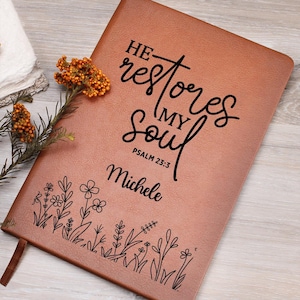 HE
restores
MY
soul
PSALM 23:3
Michele